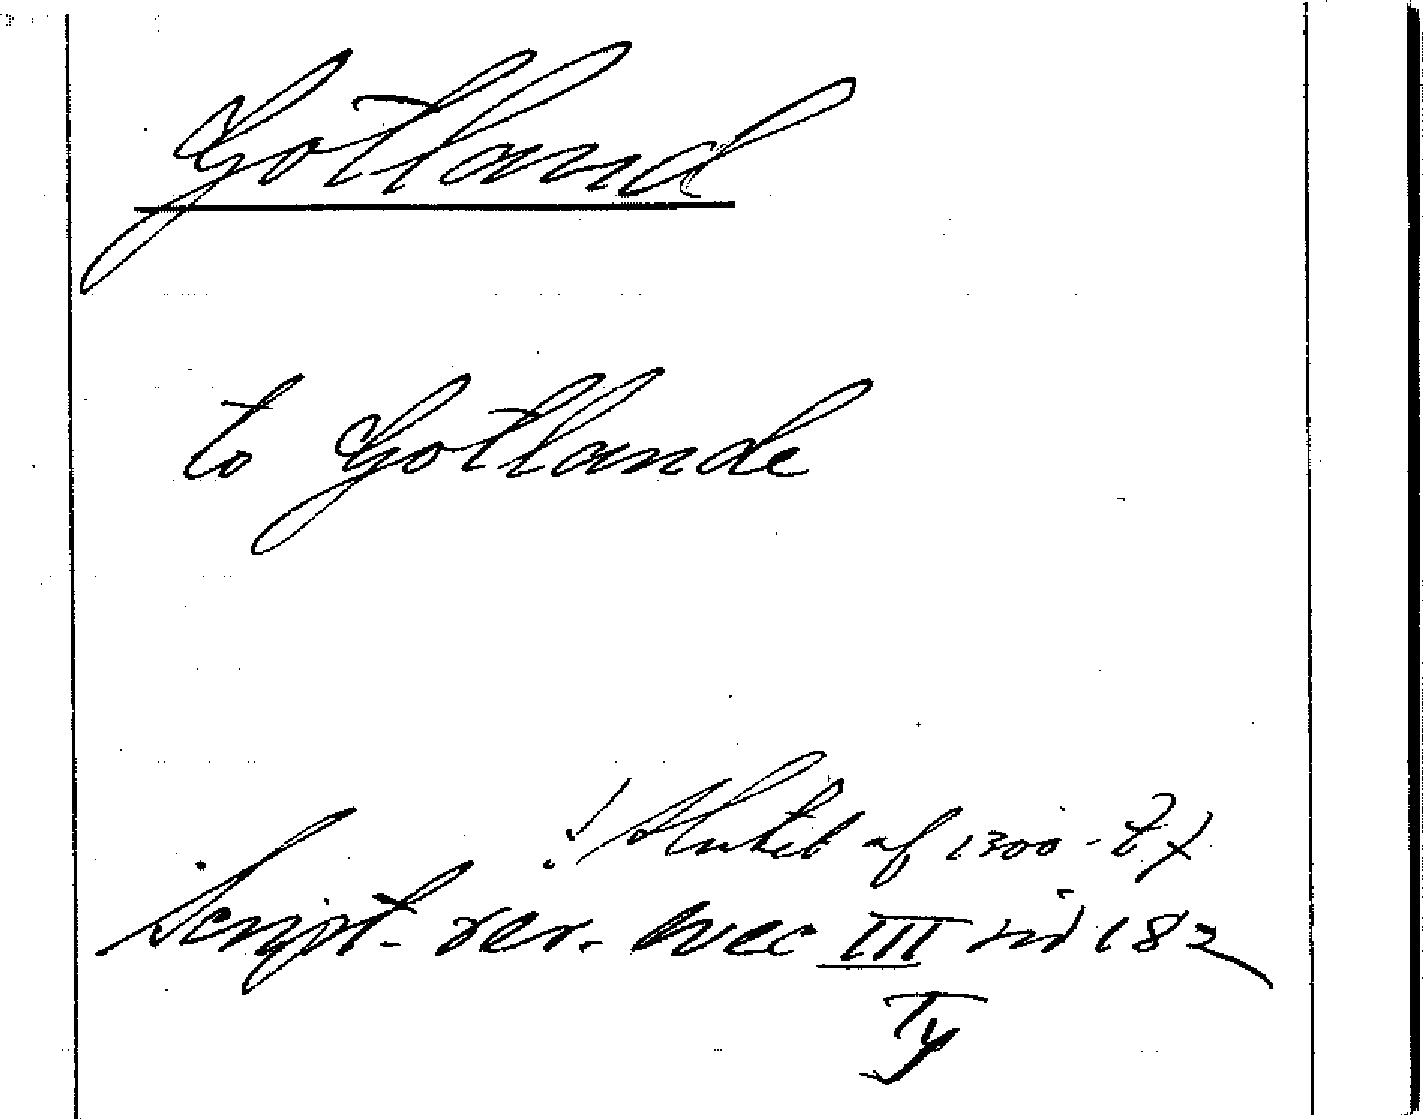 Gotland
to Gotlande
Slutet af 1300-t
Script. rer. svec III sid 182
Ty